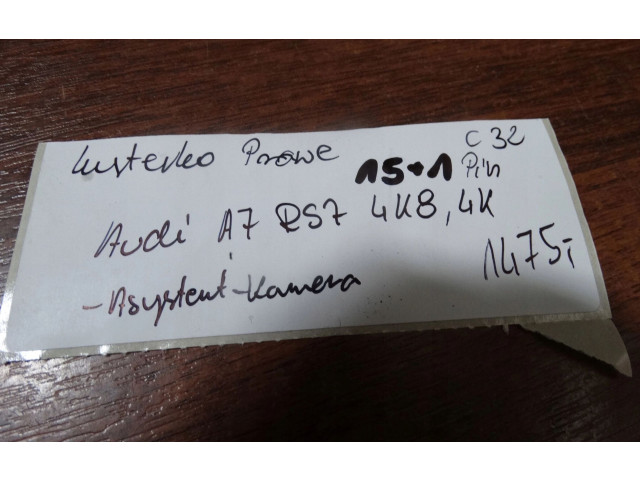 Lusterko Prawe C 32
15+1 Pin
Audi A7 RS7 4K8, 4K
- Asystent - Kamera 1475,-